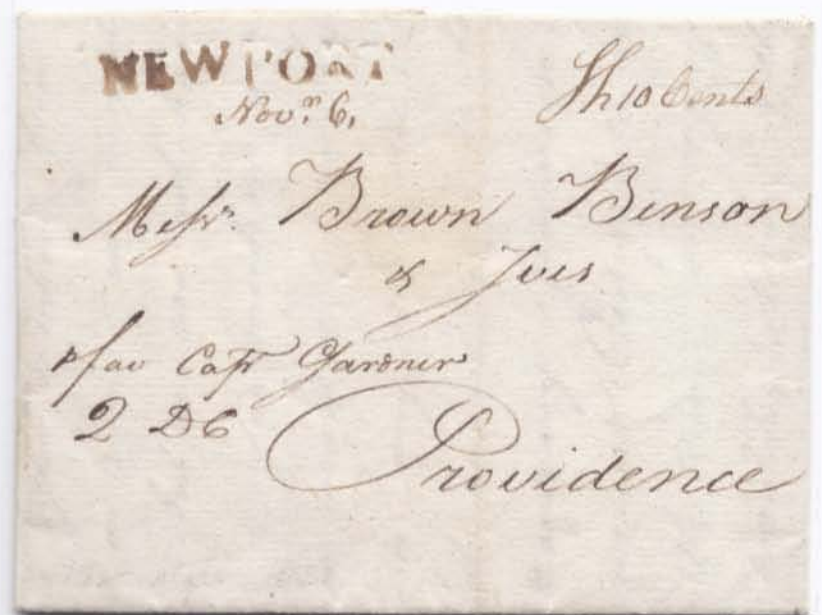 NEWPORT
Novr. 6.
Sh 10 Cents
Messrs. Brown Benson
& Ives
p fav Capt Gardner
2 D C
Providence